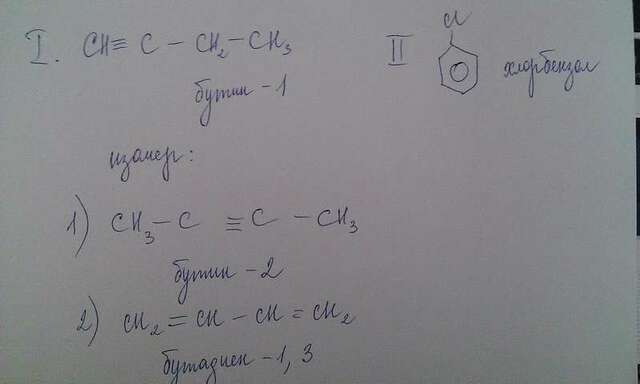 I. CH≡C-CH₂-CH₃
бутин-1
II Cl
хлорбензол
изомер:
1) CH₃-C≡C-CH₃
бутин-2
2) CH₂=CH-CH=CH₂
бутадиен-1,3